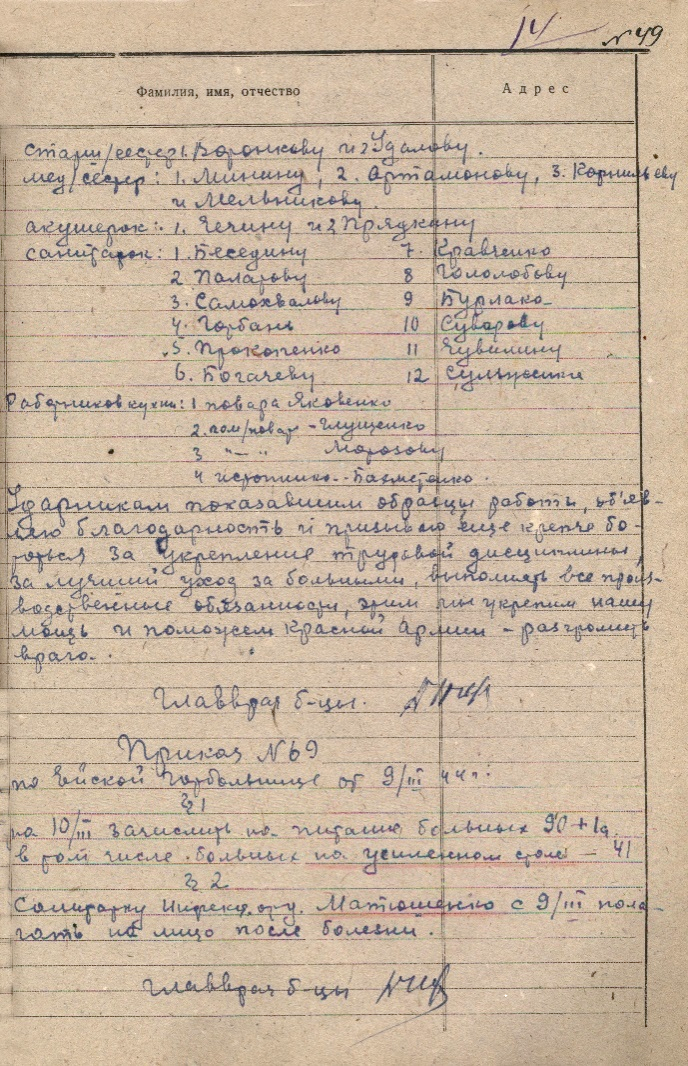 14 N 49
Фамилия, имя, отчество Адрес
старш/сестер 1. Воронкову и 2 Удалову.
мед/сестер: 1. Минину, 2. Артамонову, 3. Корнильеву
и Мельникову.
акушерок: 1. Чечину и 2 Прядкину
санитарок: 1. Беседину 7. Кравченко
2. Палатову 8 Гололобову
3. Самохвалову 9 Бурлако
4. Горбань 10 Суворову
5. Прокопенко 11 Чувилину
6. Богачеву 12
Работников кухни: 1 повара Яковенко
2. пом/повар - Глущенко
3 " — " Морозову
4 истопника - Бахметенко.
Ударникам показавшим образцы работы, об'яв-
ляю благодарность и призываю еще крепче бо-
роться за укрепление трудовой дисциплины,
за лучший уход за больными, выполнять все произ-
водственные обязанности, этим мы укрепим нашу
мощь и поможем Красной Армии - разгромить
врага.
Главврач б-цы.
Приказ N 69
по Ейской Горбольнице от 9/III 44 г.
§ 1
на 10/III зачислить на питание больных 90 + 1
в том числе больных на усиленном столе — 41
§ 2
Санитарку Инфекц. отд. Матюшенко с 9/III пола-
гать на лицо после болезни.
Главврач б-цы